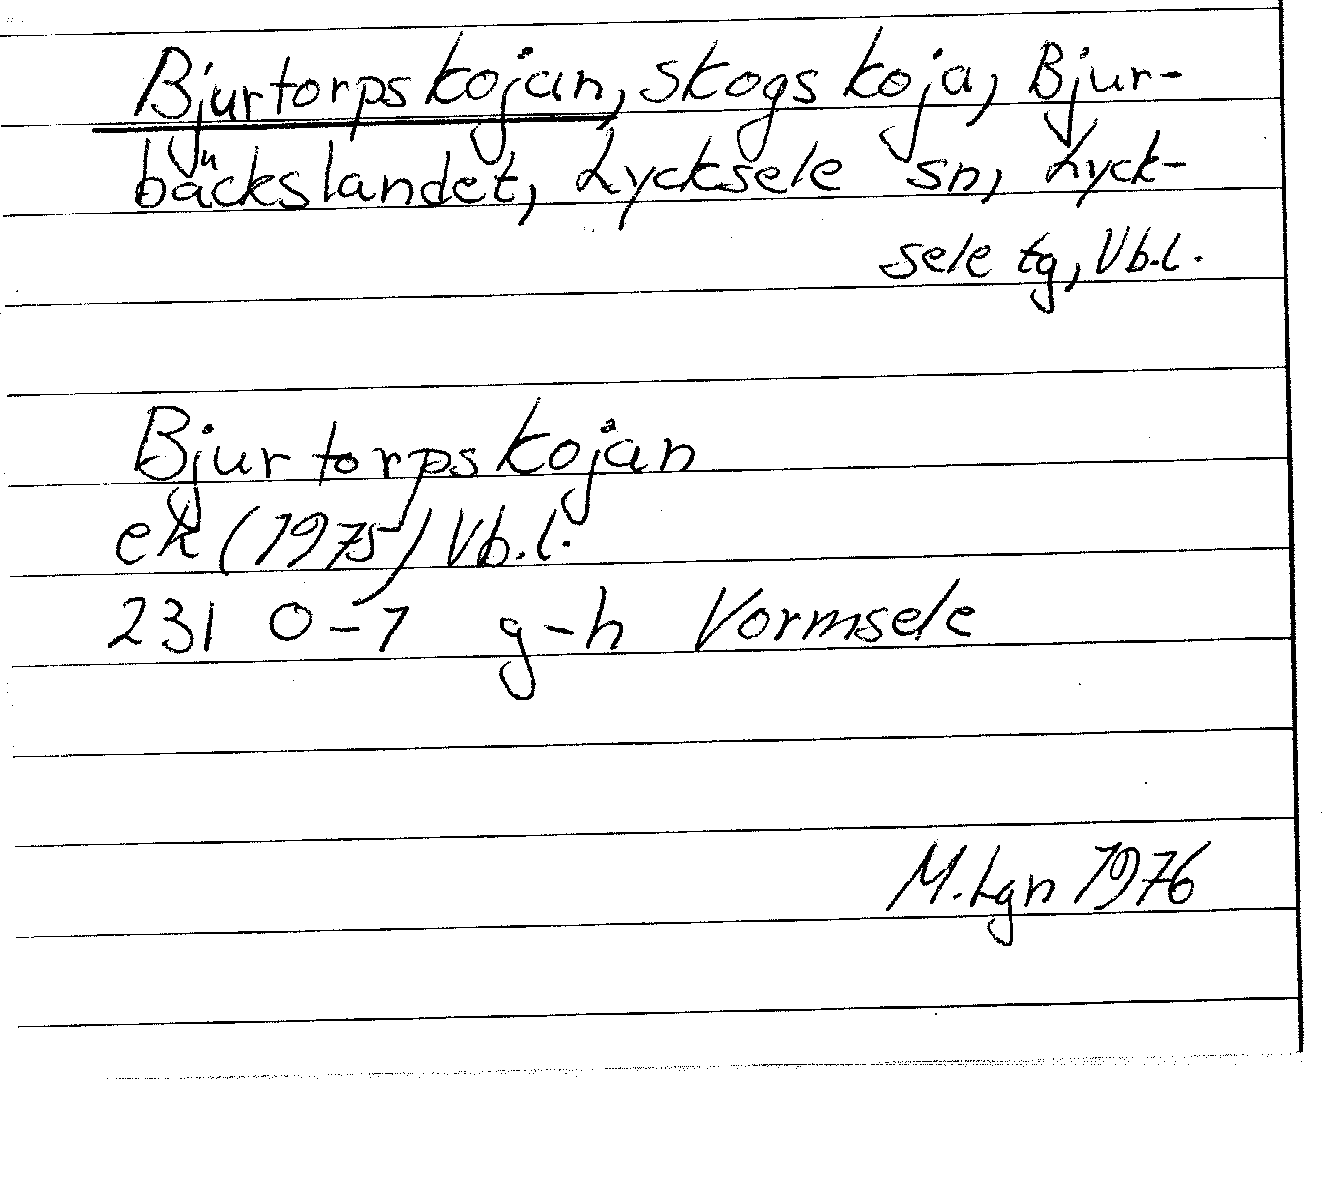 Bjurtorpskojan, skogskoja, Bjur-
bäckslandet, Lycksele sn, Lyck-
sele tg, Vb.l.
Bjurtorpskojan
ek (1975) Vb.l.
231 0-1 g-h Vormsele
M.Lgn 1976